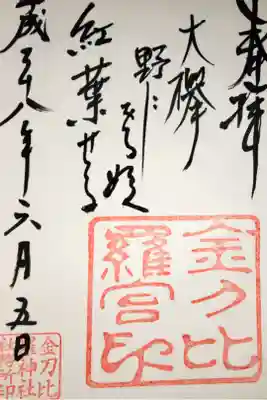 奉拝
大欅
野に
紅葉せる
成二十八年六月五日
金刀比
羅宮印
金刀比
羅神社